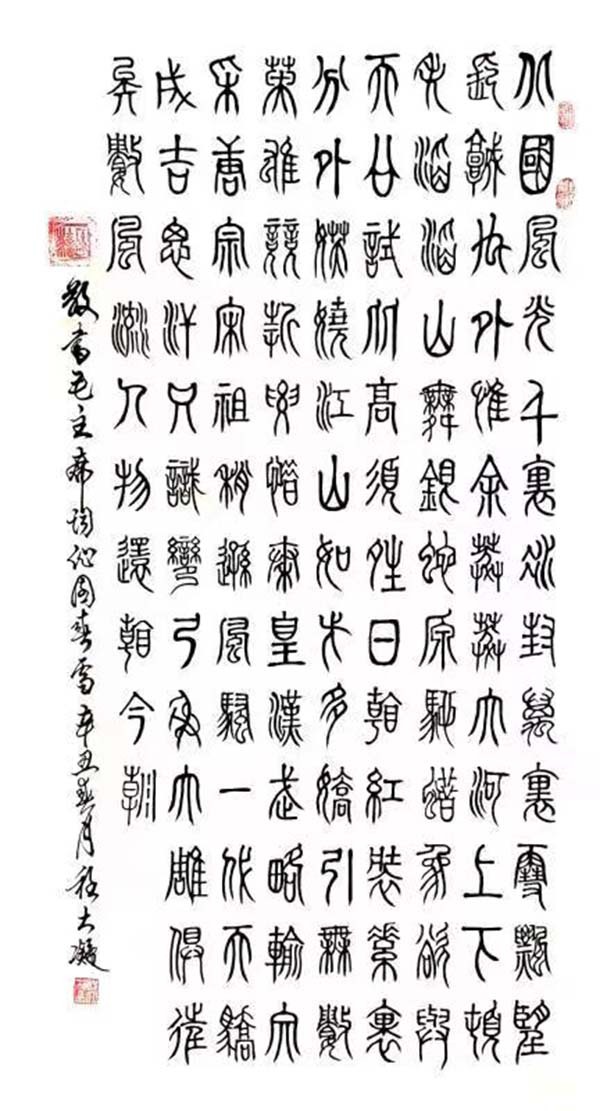 北國風光千裏冰封萬裏雪飄望
長城內外惟余莽莽大河上下頓
失滔滔山舞銀蛇原馳蠟象欲與
天公試比高須晴日看紅裝素裹
分外妖嬈江山如此多嬌引無數
英雄競折腰惜秦皇漢武略輸文
采唐宗宋祖稍遜風騷一代天驕
成吉思汗只識彎弓射大雕俱往
矣數風流人物還看今朝
敬書毛主席詞沁園春雪辛丑春月程大凝